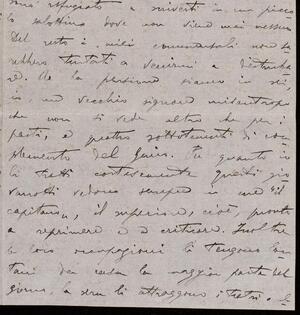 mi rifugiato a scriverti in un picco-
lo salottino dove non viene mai nessuno
Del resto i miei commensali non sa-
rebbero tentati a venirmi a disturba-
re. Me la pensione siamo in se-
i, un vecchio signore misantropo
che non si vede altro che per i
pasti, e quattro sottotenenti di com-
plemento del Genio. Per quanto io
li tratti cortesemente questi gio-
vanotti vedono sempre in me "il
capitano", il superiore, cioè, pronto
a reprimere e a criticare. Inoltre
le loro occupazioni li tengono lon-
tani da casa la maggior parte del
giorno, la sera li attraggono i teatri. E